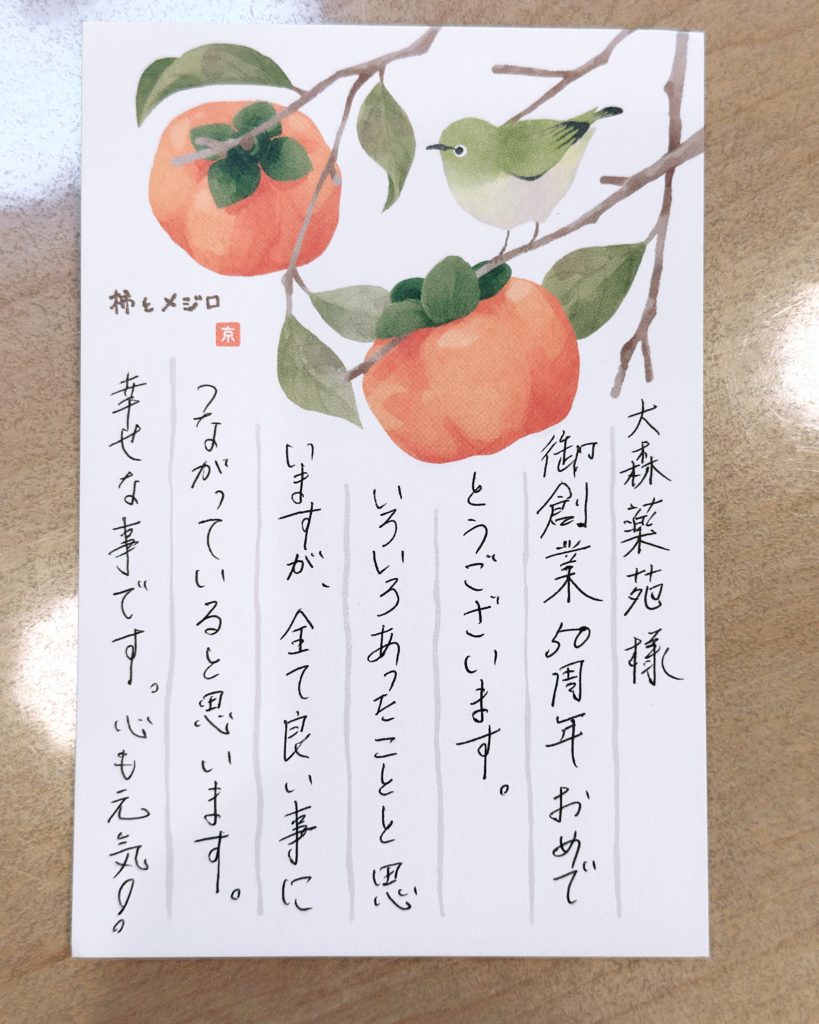 柿とメジロ
京
大森薬苑様
御創業50周年おめで
とうございます。
いろいろあったことと思
いますが、全て良い事に
つながっていると思います。
幸せな事です。心も元気!。